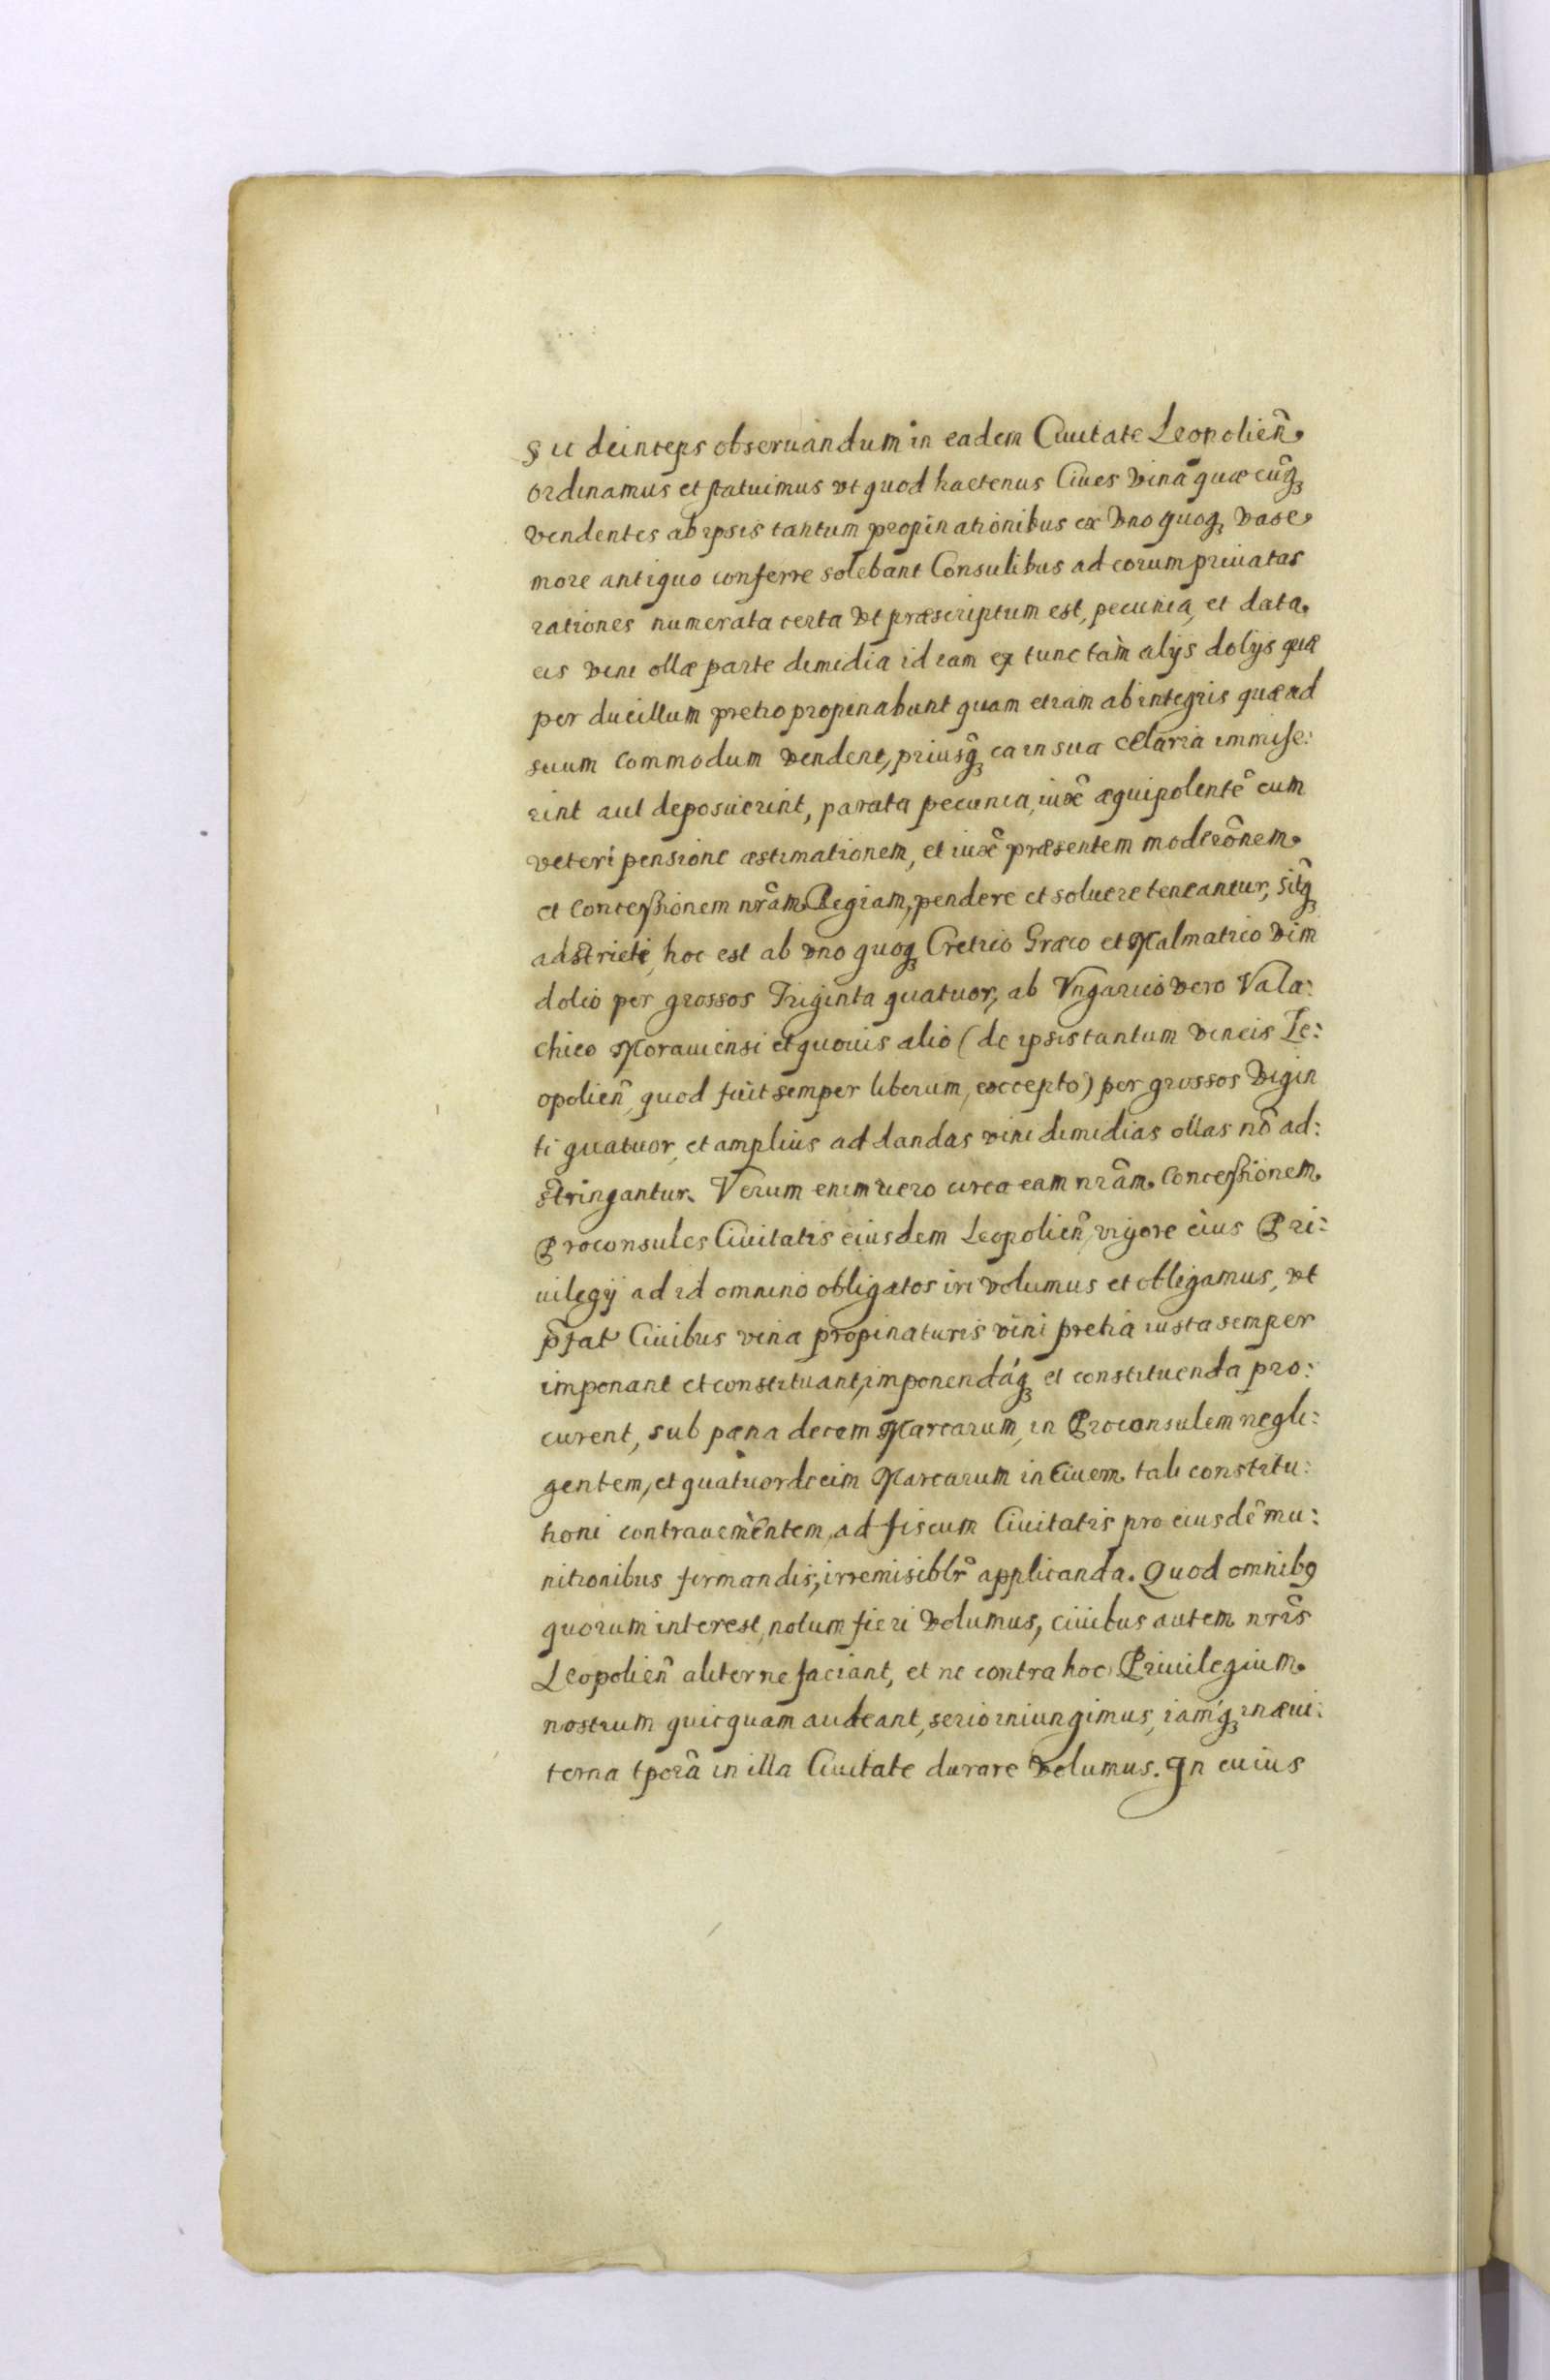 Sic deinceps obseruandum in eadem Ciuitate Leopolien̑
ordinamus et statuimus vt quod hactenus Ciues vina quæcũq₃
vendentes ab ipsis tantum propinationibus ex vno quoq₃ vase
more antiquo conferre solebant Consulibus ad eorum priuatas
rationes numerata certa vt præscriptum est, pecunia, et data
eis vini ollæ parte dimidia id iam ex tunc tàm alijs dolijs quæ
per ducillum pretio propinabunt quam etiam ab integris quæ ad
suum commodum vendent, priusq̑₃ ea in sua cœlaria immise:
rint aut deposuerint, parata pecunia, iux̑ æquipolente᷃ cum
veteri pensione æstimationem, et iux̑ præsentem modeȓonem
et Concessionem nȓam Regiam, pendere et soluere teneantur, sitq̑₃
adstricti, hoc est ab vno quoq₃ Cretico Græco et Malmatico vini
dolio per grossos Triginta quatuor, ab Vngarico vero Vala:
chico Morauiensi et quouis alio (de ipsis tantum vineis Le:
opolien̑, quod fuit semper liberum, excepto) per grossos Vigin
ti quatuor, et amplius ad dandas vini dimidias ollas nõ ad:
stringantur. Verum enim uero circa eam nȓam Concessionem
Proconsules Ciuitatis eiusdem Leopolien̑, vigore eius Pri:
uilegij ad id omnino obligatos iri volumus et obligamus, vt
p̑fat Ciuibus vina propinaturis vini pretia iusta semper
imponant et constituant, imponendáq₃ et constituenda pro:
curent, sub pæna decem Marcarum, in Proconsulem negli:
gentem, et quatuordecim Marcarum in Ciuem tali constitu:
tioni contrauenientem, ad fiscum Ciuitatis pro eiusde᷃ mu:
nitionibus firmandis, irremisiblȓ applicanda. Quod omnibꝯ
quorum interest, notum fieri volumus, ciuibus autem nȓis
Leopolien̑ aliter ne faciant, et ne contra hoc Priuilegium
nostrum quicquam audeant, serio iniungimus, iamq́₃ in æui:
terna tpoȓa in illa Ciuitate durare volumus. In cuius